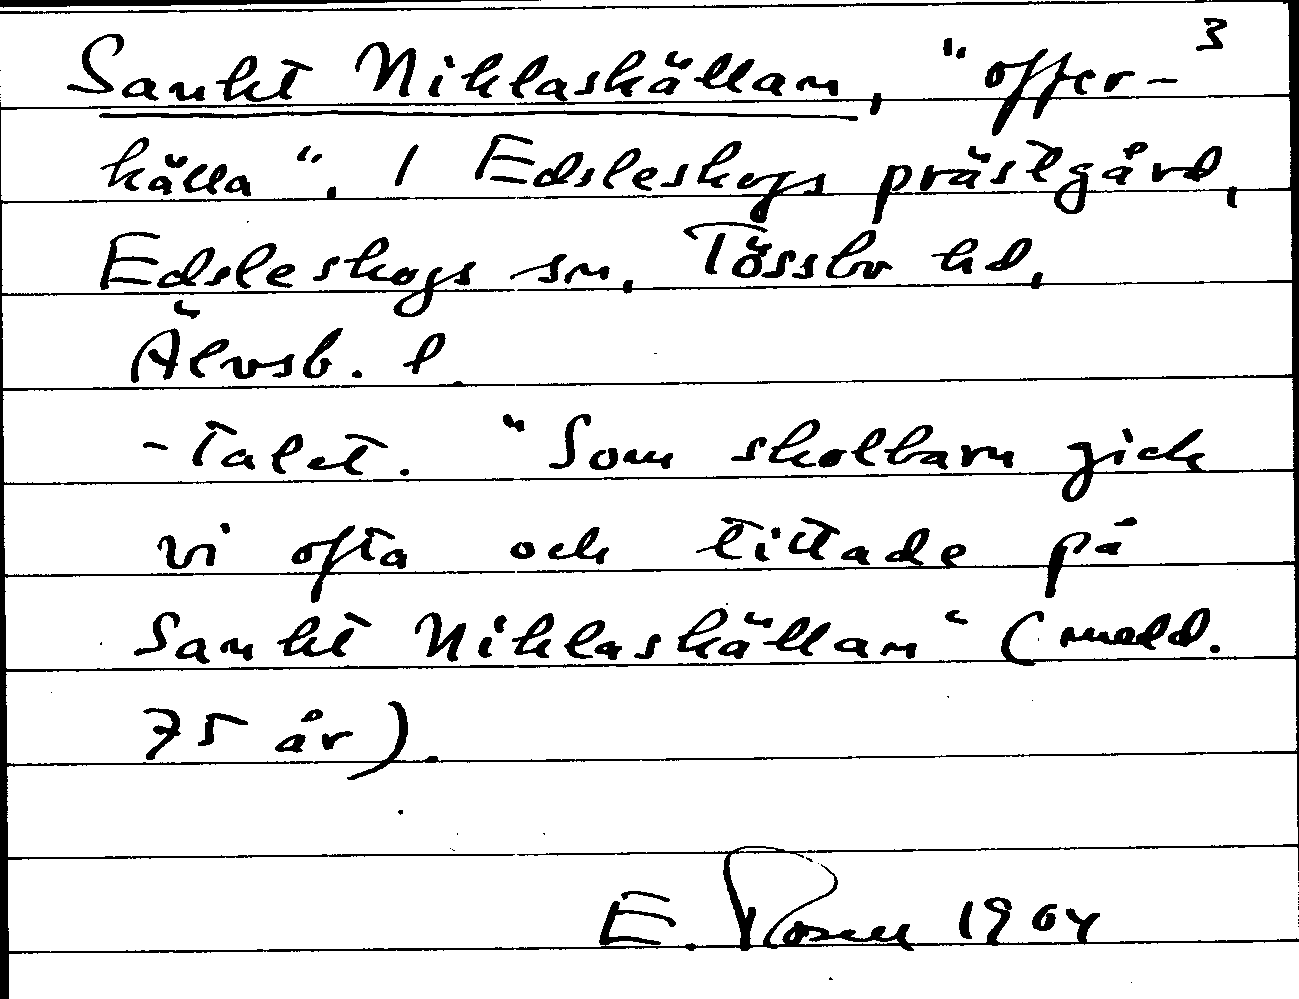 3
Sankt Niklaskällan, "offer-
källa". I Edsleskogs prästgård,
Edsleskogs sn, Tössbo hd,
Älvsb. l.
-Talet. "Som skolbarn gick
vi ofta och tittade på
Sankt Niklaskällan" (medd.
75 år).
E. Rosell 1904